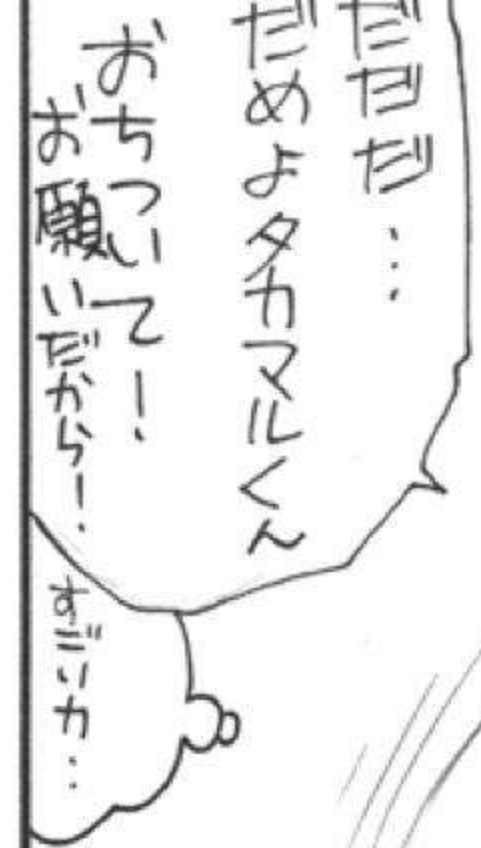 だだだ…
だめよタカマルくん
おちついてー!
お願いだから!
すごい力…